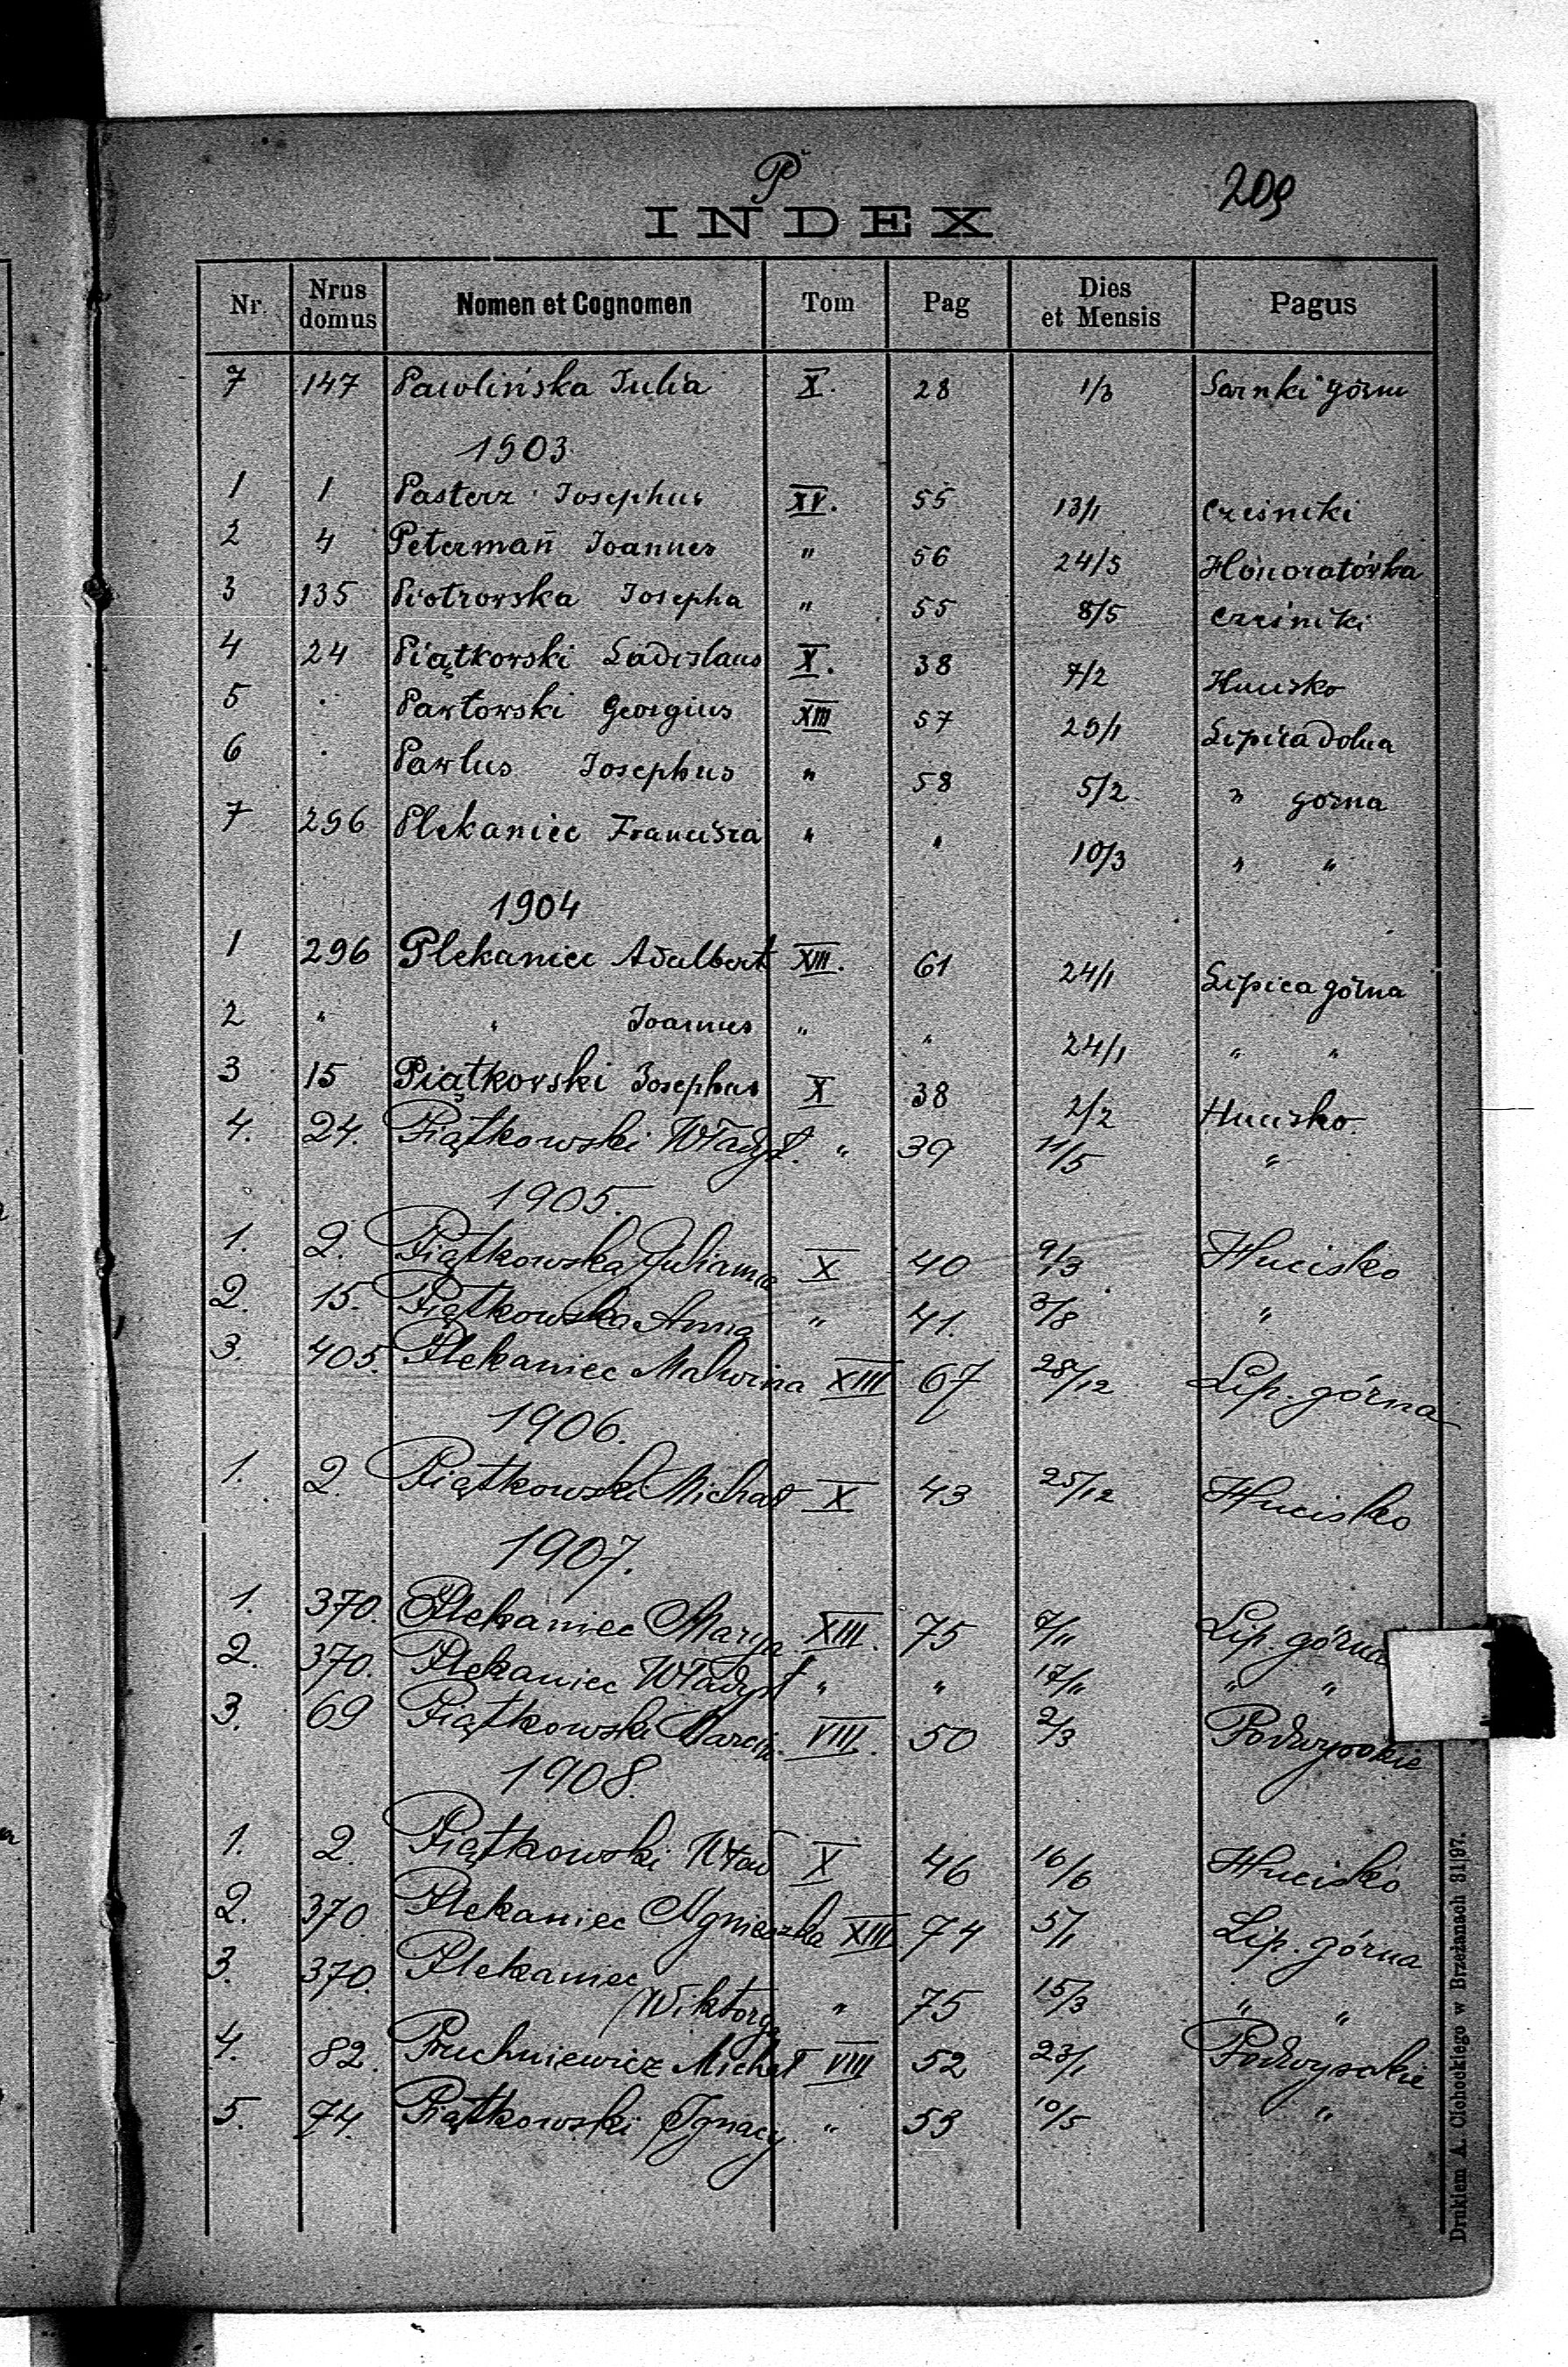 P
209
INDEX
Nr. Nrus domus Nomen et Cognomen Tom Pag Dies et Mensis Pagus
7 147 Pawlińska Julia X. 28 1/3 Sarnki górne
1903
1 1 Pasterz Josephus XV. 55 13/1 Cześniki
2 4 Peterman̄ Joannes " 56 24/5 Honoratówka
3 135 Piotrowska Josepha " 55 8/5 Cześniki
4 24 Piątkowski Ladislaus X. 38 7/2 Hucisko
5 . Pawłowski Georgius XIII 57 29/1 Lipica dolna
6 . Pawlus Josephus " 58 5/2 " górna
7 296 Plekaniec Francisca " " 10/3 " "
1904
1 296 Plekaniec Adalbert XIII. 61 24/1 Lipica górna
2 " " Joannes " " 24/1 " "
3 15 Piątkowski Josephus X 38 2/2 Hucisko
4. 24. Piątkowski Władysł. " 39 11/5 "
1905.
1. 2. Piątkowska Julianna X 40 9/3 Hucisko
2. 15. Piątkowska Anna " 41. 3/8 "
3. 405. Plekaniec Malwina XIII 67 28/12 Lip. górna
1906.
1. 2. Piątkowski Michał X 43 25/12 Hucisko
1907.
1. 370. Plekaniec Marya XIII. 75 7/11 Lip. górna
2. 370. Plekaniec Władysł " " 17/11 " "
3. 69 Piątkowski Marcin. VIII. 50 2/3 Podwysokie
1908.
1. 2. Piątkowski Wład X 46 16/6 Hucisko
2. 370 Plekaniec Agnieszka XIII 74 5/1 Lip. górna
3. 370. Plekaniec Wiktorya " 75 15/3 " "
4. 82. Pruchniewicz Michał VIII 52 23/1 Podwysokie
5. 74. Piątkowski Ignacy " 53 10/5 "
Drukiem A. Cichockiego w Brzeżanach 31|97.